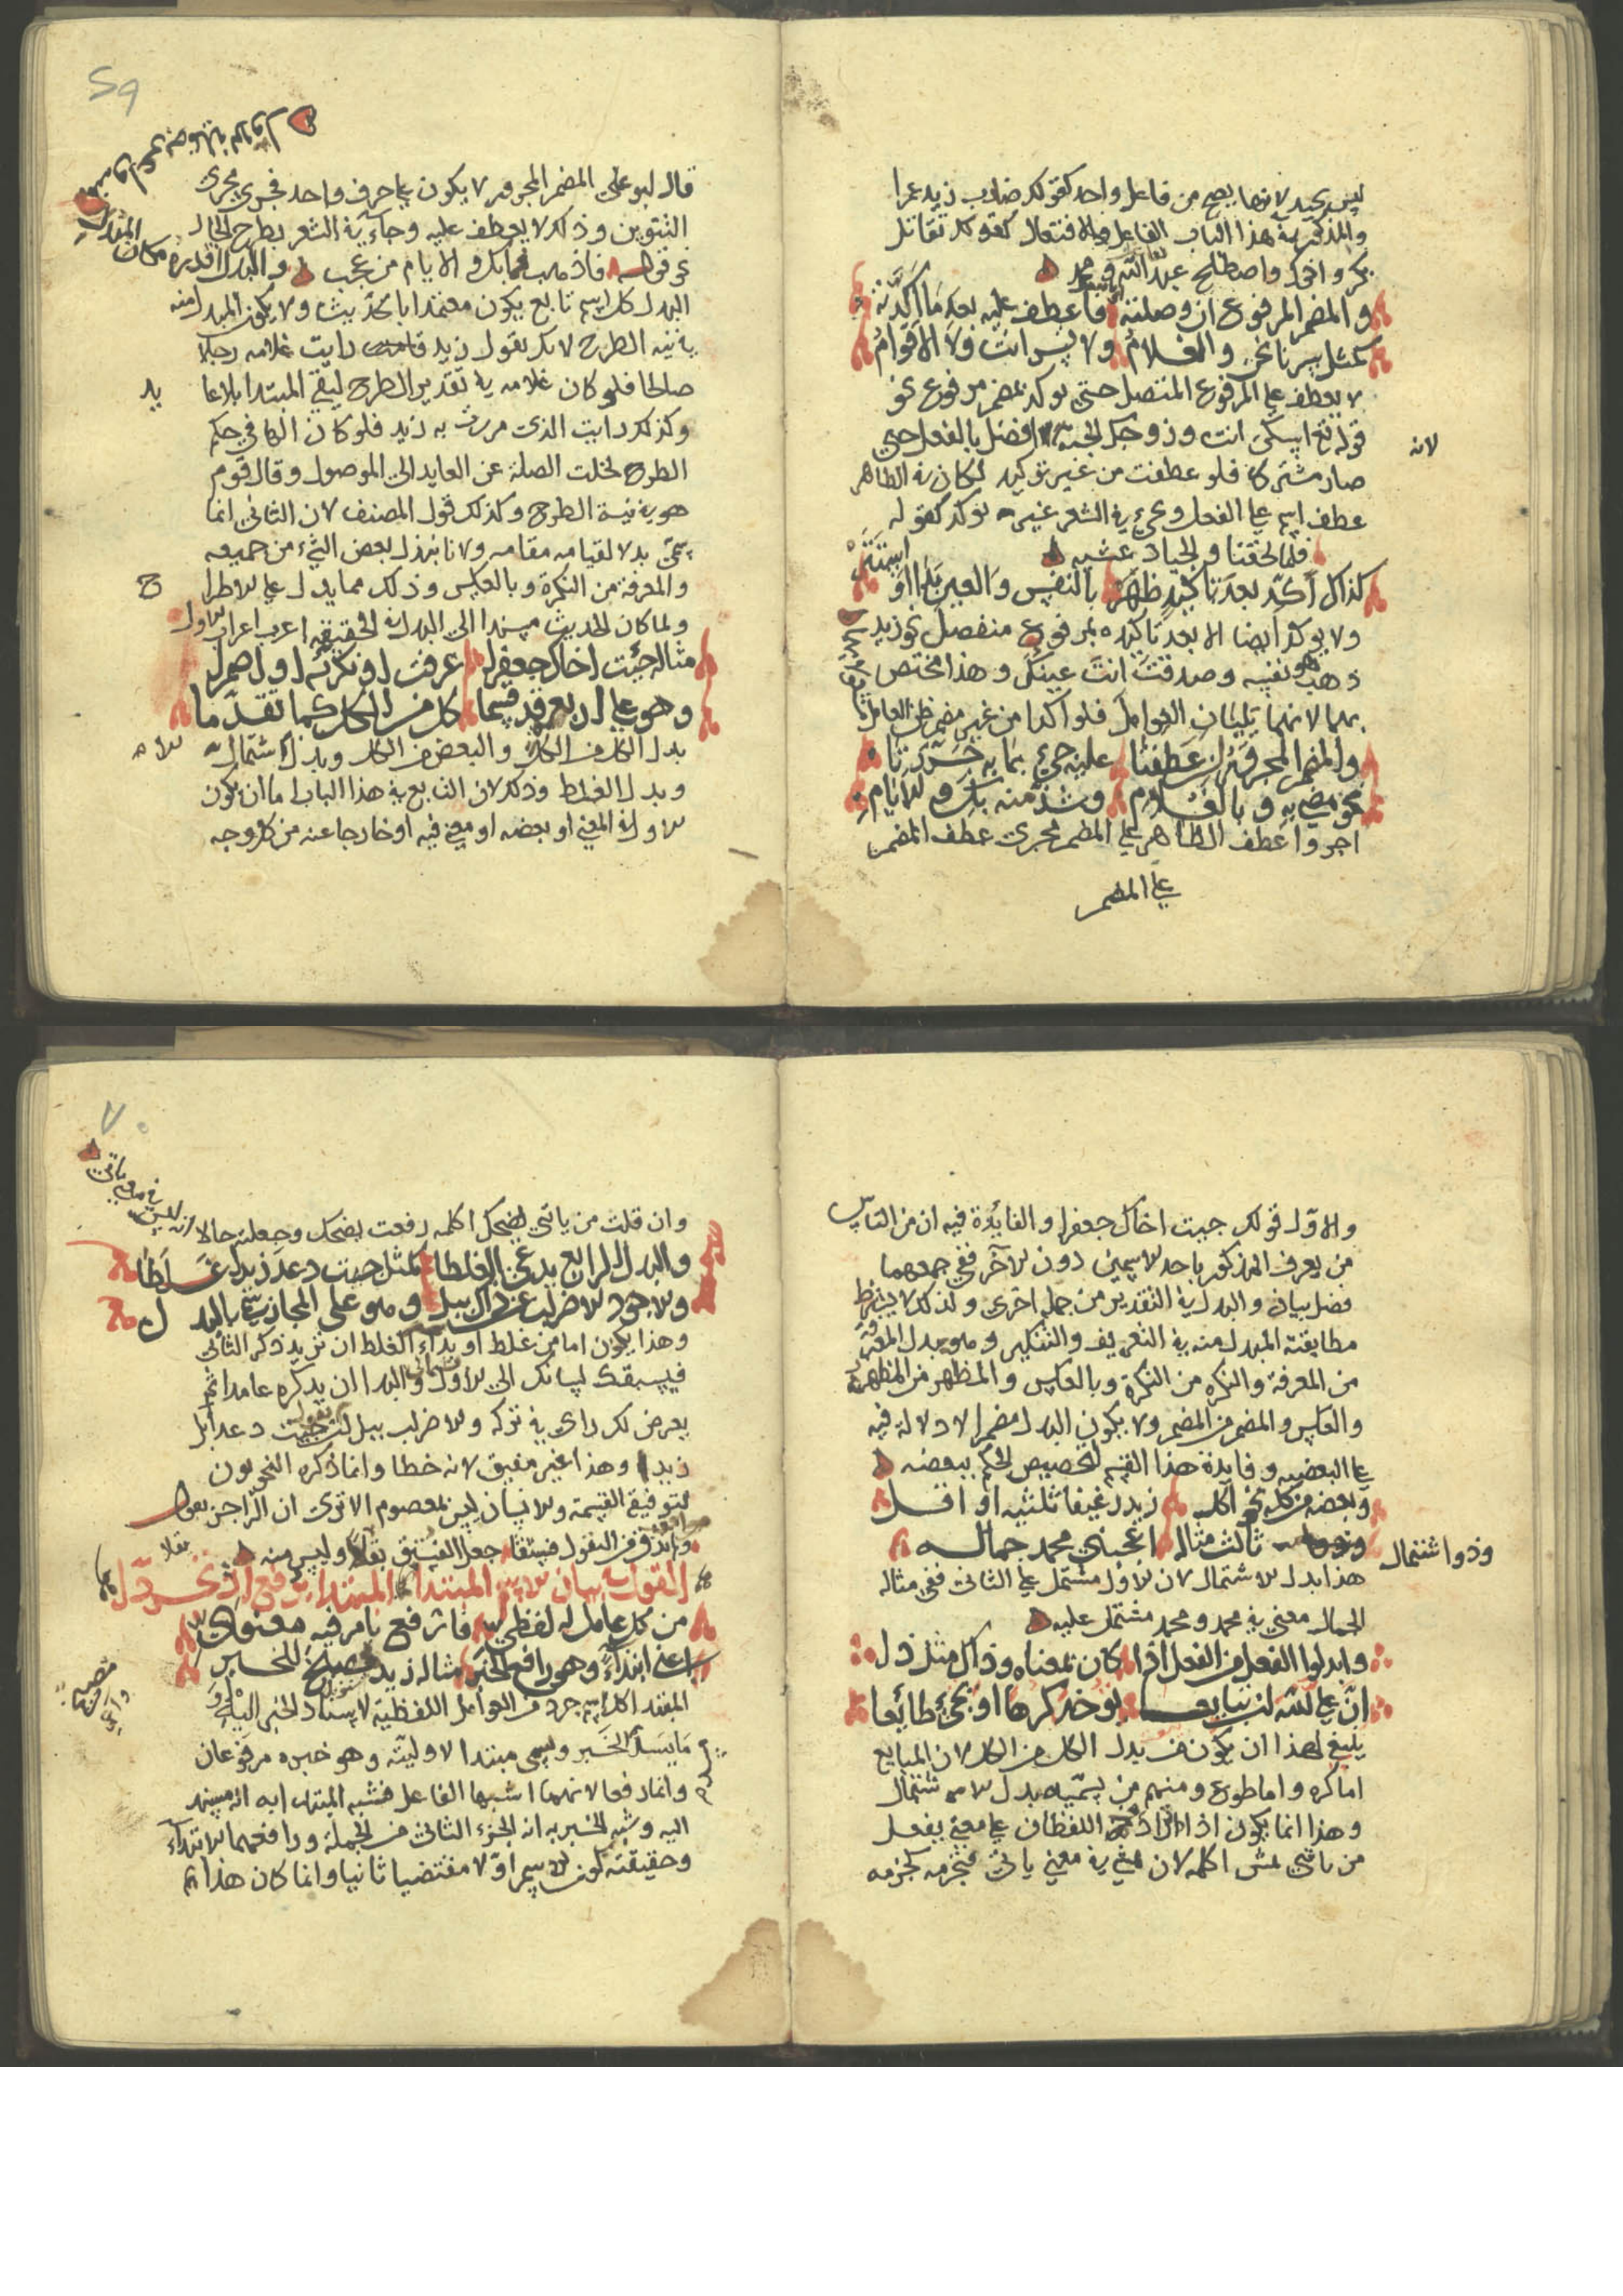 ليس بجيد لانها يصح من فاعل واحد كقولك ضارب زيد عمرا
والمذكور في هذا الباب الفاعل والافتعال كقولك تقاتل
بكر واخوك واصطلح عبد الله ومحمد
والمضمر المرفوع ان وصلته فاعطف عليه بعد ما اكدته
كمثل سرنا نحن والغلام وليس انت ولا الاقوام
لا يعطف على المرفوع المتصل حتى يوكد بمضمر مرفوع نحو
قوله تع اسكن انت وزوجك الجنة اتصل بالفعل حتى
لانه
صار مشتركا فلو عطفت من غير توكيد لكان في الظاهر
عطف اسم على الفعل وجيء في الشعر غير موكد كقوله
فلما لحقنا والجياد عشية
كذاك اكد بعد تاكيد ظهر بالنفس والعين لما استتر
ولا يوكد ايضا الا بعد تاكيده بمرفوع منفصل نحو زيد
ذهب هو نفسه وصدقت انت عينك وهذا مختص
بهما لانهما يليان العوامل فلو اكدا من غير مضمر ظن العامل
والمضمر المجرور ان عطفتا عليه جيء بما به جررتا
نحو مضى به وبالغلام وشذ منه بك والايام
اجروا عطف الظاهر على المضمر مجرى عطف المضمر
على المضمر
59
قال ابو علي المضمر المجرور لا يكون على حرف واحد فجرى مجرى
التنوين وذلك لا يعطف عليه وجاء في الشعر بطرح الجار
نحو قوله فاذهب فما بك والايام من عجب والبدل اقدره مكان المبدل
البدل كل اسم تابع يكون معتمدا بالحديث ولا يكون المبدل منه
في نية الطرح لانك تقول زيد رايت غلامه رجلا
صالحا فلو كان غلامه في تقدير الطرح لبقي المبتدا بلا عا
يد
وكذلك رايت الذي مررت به زيد فلو كان الها في حكم
الطرح لخلت الصلة عن العايد الى الموصول وقال قوم
هو في نية الطرح وكذلك قول المصنف لان الثاني انما
سمي بدلا لقيامه مقامه ولانا نبدل بعض الشيء من جميعه
والمعرفة من النكرة وبالعكس وذلك مما يدل على الاطرا
ح
ولما كان الحديث مسندا الى البدل في الحقيقة اعرب اعراب الاول
مثاله جئت اخاك جعفرا عرفت او نكرته او اضمرا
وهو على اربع قد قسما كل من الكل كما تقدما
بدل الكل من الكل والبعض من الكل وبدل الاشتمال
وبدل الغلط وذلك لان التابع في هذا الباب اما ان يكون
الاول في المعنى او بعضه او معنى فيه او خارجا عنه من كل وجه
والاول قولك جيت اخاك جعفرا والفائدة فيه ان من الناس
من يعرف المذكور باحد الاسمين دون الاخر ففي جمعهما
فضل بيان والبدل في التقدير من جملة اخرى ولذلك لا يشترط
مطابقته المبدل منه في التعريف والتنكير وهو بدل المعرفة
من المعرفة والنكرة من النكرة وبالعكس والمظهر من المظهر
والعكس والمضمر من المضمر ولا يكون البدل مضمرا لا دلالة فيه
على البعضية وفايدة هذا القسم تخصيص الحكم ببعضه
وبعضه من كل نحو اكله زيد رغيفا ثلثيه او اقل
وذو اشتمال
ثالث مثاله اعجبني محمد جماله
هذا بدل الاشتمال لان الاول مشتمل على الثاني ففي مثاله
الجمال معنى في محمد ومحمد مشتمل عليه
وابدلوا الفعل من الفعل اذا كان بمعناه وذاك مثل ذا
ان على الله ان تبايعا توخذ كرها او تجيء طائعا
ينبغي لهذا ان يكون من بدل الكل من الكل لان المبايع
اما كره واما طوع ومنهم من يسميه بدل الاشتمال
وهذا انما يكون اذا ترادف اللفظان على معنى بفعل
من ياتني يمش اكلمه لان يمشي في معنى ياتي فتجزمه كجزمه
70
وان قلت من ياتني يضحك اكلمه رفعت يضحك وجعلته حالا
والبدل الرابع يدعى الغلطا كمثل جيت دعد زيدا غلطا
والاجود الاضراب عن ذاك ببل وهو على المجاز سمي بالبدل
وهذا يكون اما من غلط او بداء الغلط ان تريد ذكر الثاني
فيسبقك لسانك الى الاول والبدا ان يذكره عامدا ثم
يعرض لك راي في تركه والاضراب ببل ان تقول جيت دعدا بل
زيدا وهذا غير مقيس لانه خطا وانما ذكره النحويون
لتوفية القسمة والانسان ليس بمعصوم الا ترى ان الراجز يقول
ولم تذق من البقول فستقا جعل الفستق بقلا وليس منه
بقلا
القول في بيان الاسم المبتدا المبتدا يرفع اذ تجردا
من كل عامل له لفظي فارتفع بامر فيه معنوي
اعني ابتداء وهو رافع الخبر مثاله زيد الخير
المبتدا كل اسم جرد من العوامل اللفظية لاسناد الخبر اليه
ما يسند الخبر وسمي مبتدا لاوليته وهو خبره مرفوعان
وانما رفعا لانهما اشبها الفاعل فشبه المبتدا به انه مسند
اليه وشبه الخبر به انه الجزء الثاني من الجملة ورافعهما الابتداء
وحقيقته كون الاسم اولا مقتضيا ثانيا وانما كان هذا